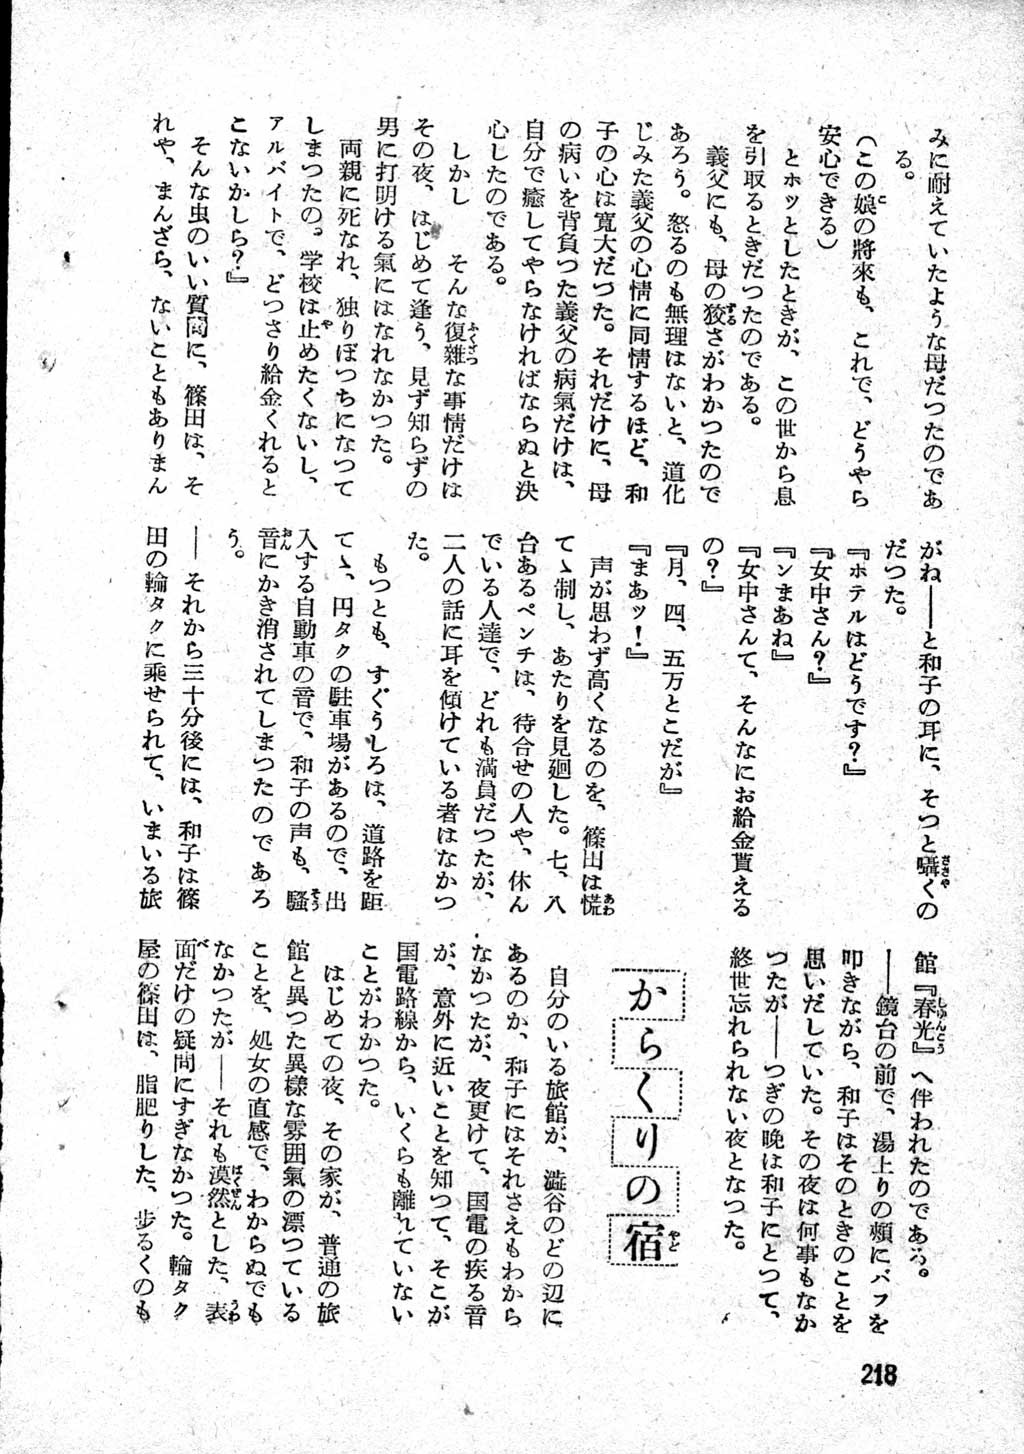 みに耐えていたような母だつたのであ
る。
(この娘の將來も、これで、どうやら
安心できる)
とホッとしたときが、この世から息
を引取るときだつたのである。
義父にも、母の狡さがわかつたので
あろう。怒るのも無理はないと、道化
じみた義父の心情に同情するほど、和
子の心は寛大だつた。それだけに、母
の病いを背負つた義父の病氣だけは、
自分で癒してやらなければならぬと決
心したのである。
しかし　　そんな復雜な事情だけは
その夜、はじめて逢う、見ず知らずの
男に打明ける氣にはなれなかつた。
両親に死なれ、独りぼつちになつて
しまつたの。学校は止めたくないし、
アルバイトで、どつさり給金くれると
こないかしら?』
そんな虫のいい質問に、篠田は、そ
れや、まんざら、ないこともありまん
がね――と和子の耳に、そつと囁くの
だつた。
『ホテルはどうです?』
『女中さん?』
『ンまあね』
『女中さんて、そんなにお給金貰える
の?』
『月、四、五万とこだが』
『まあッ!』
声が思わず高くなるのを、篠田は慌
てゝ制し、あたりを見廻した。七、八
台あるベンチは、待合せの人や、休ん
でいる人達で、どれも満員だつたが、
二人の話に耳を傾けている者はなかつ
た。
もつとも、すぐうしろは、道路を距
てゝ、円タクの駐車場があるので、出
入する自動車の音で、和子の声も、騒
音にかき消されてしまつたのであろ
う。
――それから三十分後には、和子は篠
田の輪タクに乘せられて、いまいる旅
館『春光』へ伴われたのである。
――鏡台の前で、湯上りの頬にパフを
叩きながら、和子はそのときのことを
思いだしていた。その夜は何事もなか
つたが――つぎの晩は和子にとつて、
終世忘れられない夜となつた。
からくりの宿
自分のいる旅館が、澁谷のどの辺に
あるのか、和子にはそれさえもわから
なかつたが、夜更けて、国電の疾る音
が、意外に近いことを知つて、そこが
国電路線から、いくらも離れていない
ことがわかつた。
はじめての夜、その家が、普通の旅
館と異つた異樣な雰囲氣の漂つている
ことを、処女の直感で、わからぬでも
なかつたが――それも漠然とした、表
面だけの疑問にすぎなかつた。輪タク
屋の篠田は、脂肥りした、歩るくのも
218